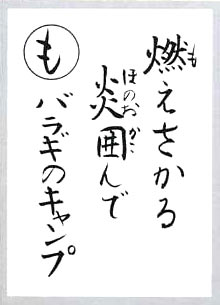 燃えさかる
炎囲んで
バラギのキャンプ
も
も
ほのお
がこ